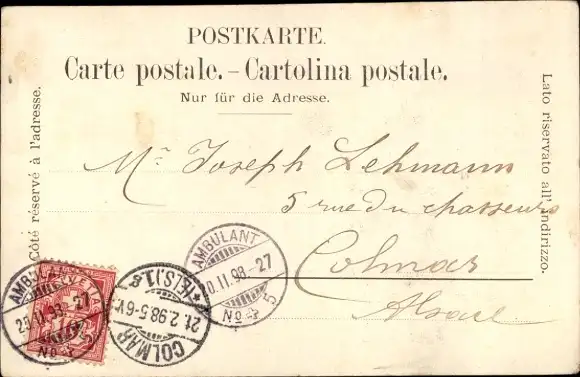 POSTKARTE.
Carte postale. – Cartolina postale.
Nur für die Adresse.
Côté réservé à l'adresse.
Lato riservato all'indirizzo.
Mr Joseph Lehmann
5 rue du chasseur
Colmar
Alsace
AMBULANT
20.II.98–27
No 4
AMBULANT
20.II.98–27
No
COLMAR
21.2.98.5-6V.
*(ELS.)1.g
HELVETIA